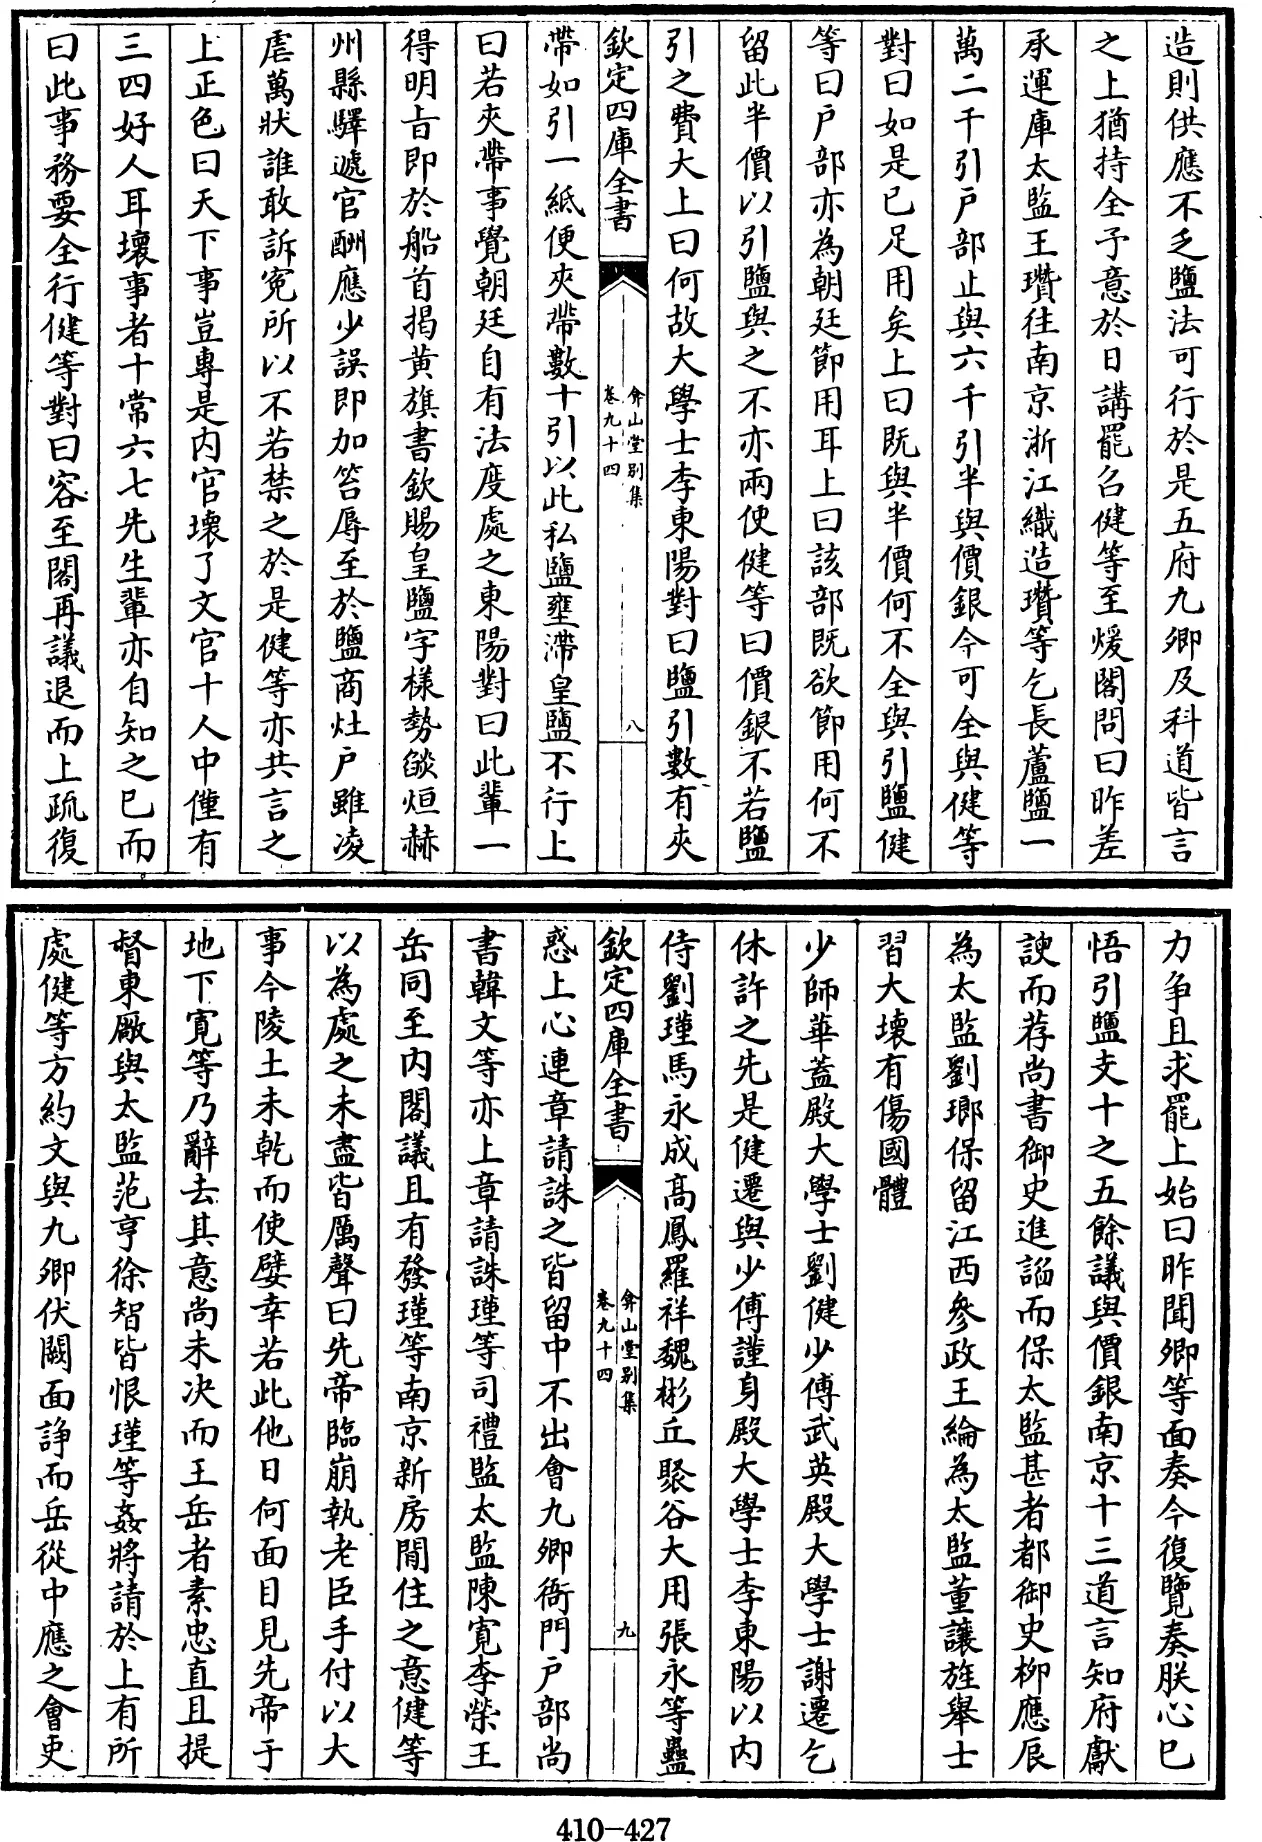 造則供應不乏鹽法可行於是五府九卿及科道皆言
之上猶持全予意於日講罷召健等至煖閣問曰昨差
承運庫太監王瓚往南京浙江織造瓚等乞長蘆鹽一
萬二千引戶部止與六千引半與價銀今可全與健等
對曰如是已足用矣上曰既與半價何不全與引鹽健
等曰戶部亦為朝廷節用耳上曰該部既欲節用何不
留此半價以引鹽與之不亦兩便健等曰價銀不若鹽
引之費大上曰何故大學士李東陽對曰鹽引數有夾
欽定四庫全書
弇山堂别集
卷九十四
八
帶如引一紙便夾帶數十引以此私鹽壅滯皇鹽不行上
曰若夾帶事覺朝廷自有法度處之東陽對曰此輩一
得明旨即於船首揭黄旗書欽賜皇鹽字樣勢燄烜赫
州縣驛遞官酬應少誤即加笞辱至於鹽商灶戶雖凌
虐萬狀誰敢訴寃所以不若禁之於是健等亦共言之
上正色曰天下事豈專是内官壞了文官十人中僅有
三四好人耳壞事者十常六七先生輩亦自知之已而
曰此事務要全行健等對曰容至閣再議退而上疏復
力争且求罷上始曰昨聞卿等面奏今復覽奏朕心已
悟引鹽支十之五餘議與價銀南京十三道言知府獻
諛而荐尚書御史進謟而保太監甚者都御史柳應辰
為太監劉瑯保留江西參政王綸為太監董讓旌舉士
習大壞有傷國體
少師華蓋殿大學士劉健少傅武英殿大學士謝遷乞
休許之先是健遷與少傅謹身殿大學士李東陽以内
侍劉瑾馬永成高鳳羅祥魏彬丘聚谷大用張永等蠱
欽定四庫全書
弇山堂别集
卷九十四
九
惑上心連章請誅之皆留中不出會九卿衙門戶部尚
書韓文等亦上章請誅瑾等司禮監太監陳寛李榮王
岳同至内閣議且有發瑾等南京新房閒住之意健等
以為處之未盡皆厲聲曰先帝臨崩執老臣手付以大
事今陵土未乾而使嬖幸若此他日何面目見先帝于
地下寛等乃辭去其意尚未决而王岳者素忠直且提
督東廠與太監范亨徐智皆恨瑾等姦將請於上有所
處健等方約文與九卿伏闕面諍而岳從中應之會吏
410-427